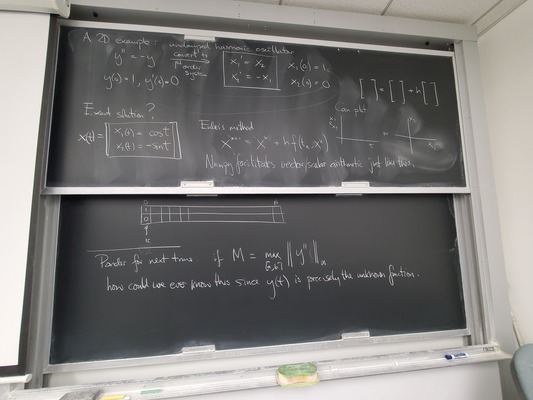 A 2D example: undamped harmonic oscillator
y'' = -y
y(0) = 1, y'(0) = 0
convert to
1st order
system
x₁' = x₂
x₂' = -x₁
x₁(0) = 1
x₂(0) = 0
[ ] = [ ] + h[ ]
Exact solution?
x(t) = [x₁(t) = cos t
x₂(t) = -sin t]
Euler's method
Can plot
or
Numpy facilitates vector/scalar arithmetic just like this.
Ponder for next time: if M = max ‖y''‖∞
how could we ever know this since y(t) is precisely the unknown function.